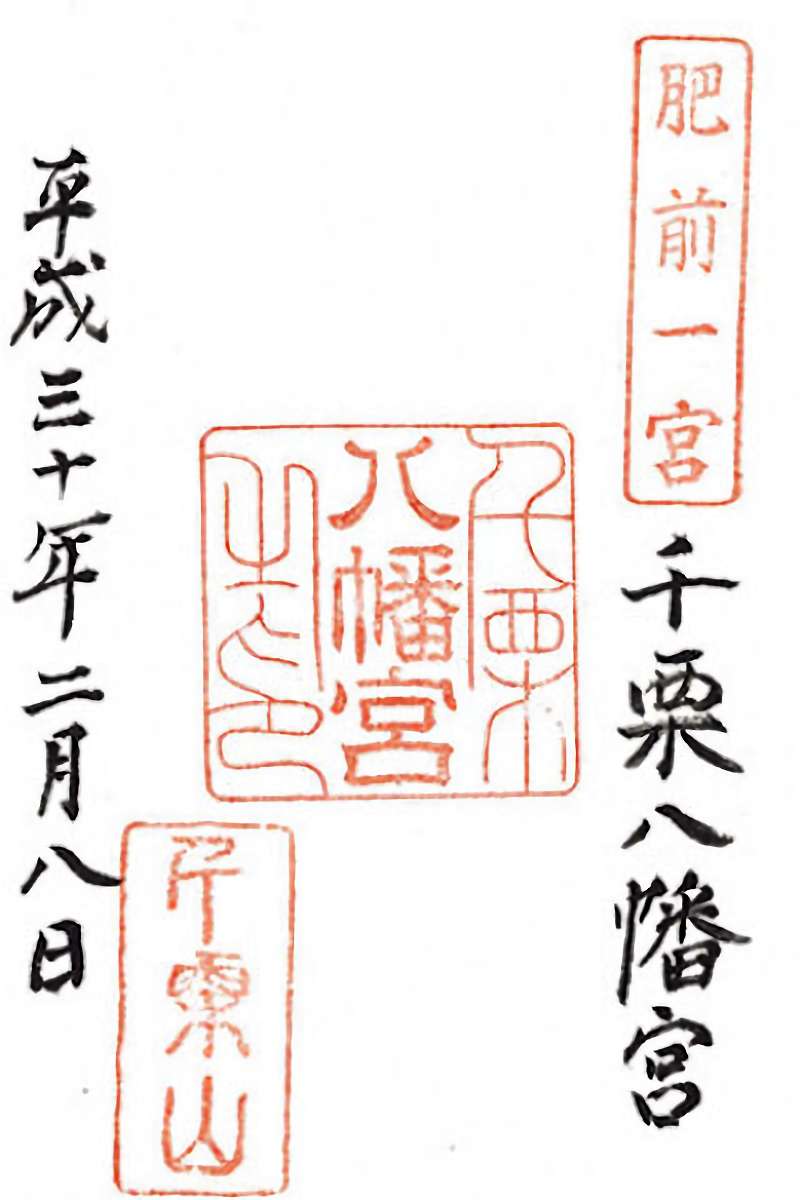 肥前一宮
千栗八幡宮
千栗
八幡宮
之印
千栗山
平成三十年二月八日